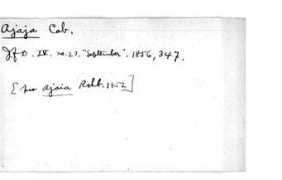 Ajaja Cab.
JfO. IV. no. 23. "September". 1856, 347.
[see Ajaia Rchb. 1852]